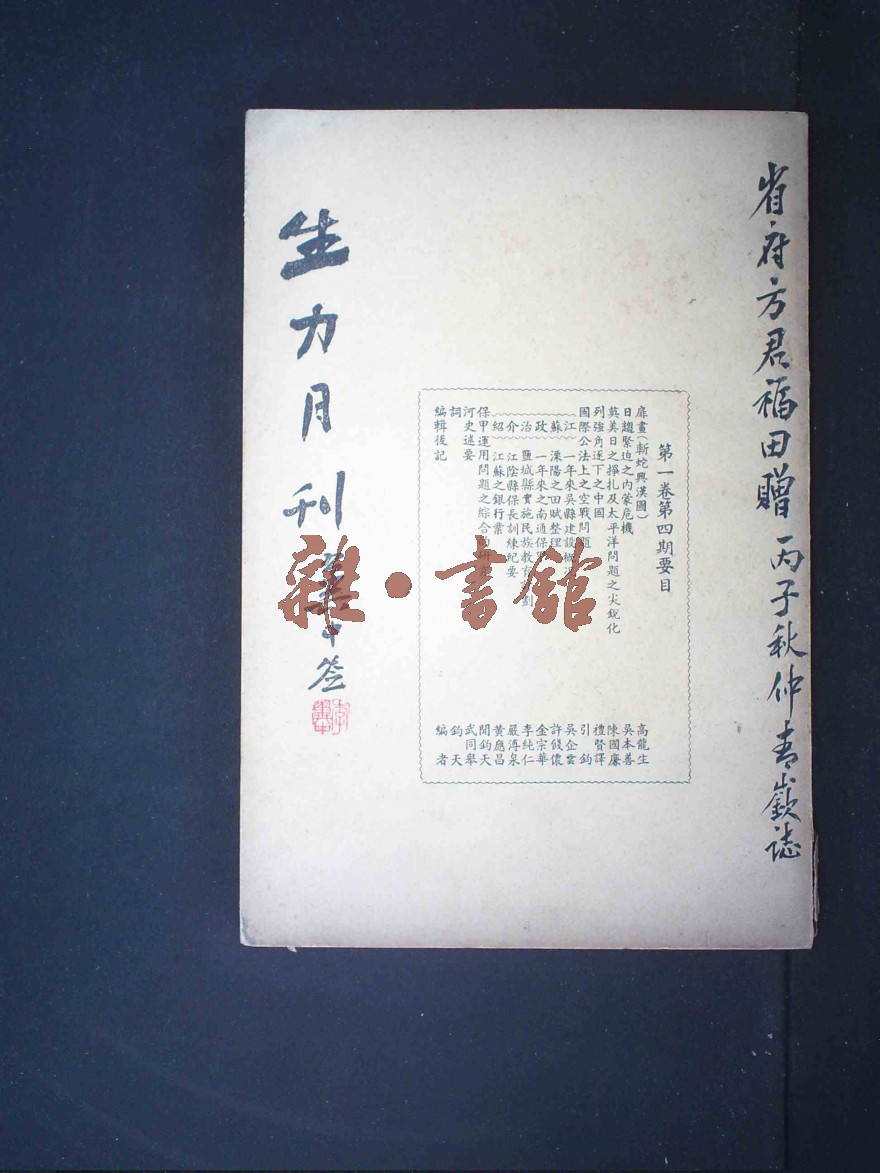 省府方君福田贈 丙子秋仲青嶔誌
第一卷第四期要目
扉畫(斬蛇興漢圖) 高龍生
日趨緊迫之內蒙危機 吳本善
英美日之掙扎及太平洋問題之尖銳化 陳國廉
列強角逐下之中國 禮賢譯
國際公法上之空戰問題 引鈞
江蘇政治介紹
一年來吳縣建設概況 吳企雲
溧陽之田賦整理 許餞儂
一年來之南通保甲 金宗華
鹽城縣實施民族教育計劃 李純仁
江陰縣保長訓練紀要 嚴溥泉
江蘇之銀行業 黃應昌
保甲運用問題之綜合的研究 聞鈞天
河史述要 武同舉
詞 鈞天
編輯後記 編者
生力月刊
簽
雜·書館